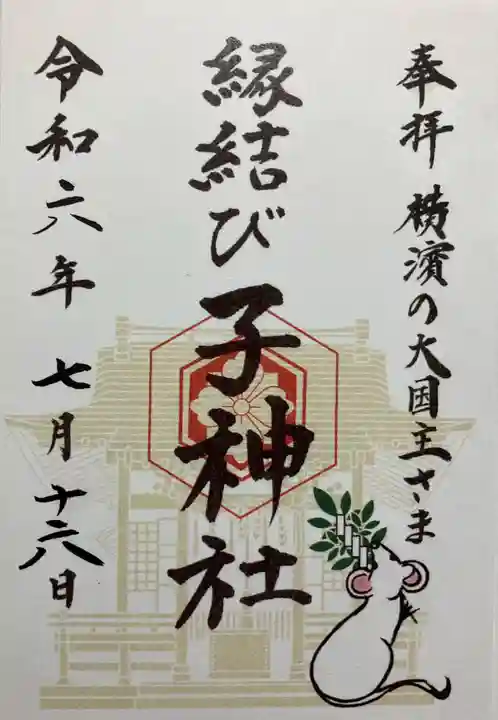 奉拝 横濱の大国主さま
縁結び子神社
令和六年 七月十六日